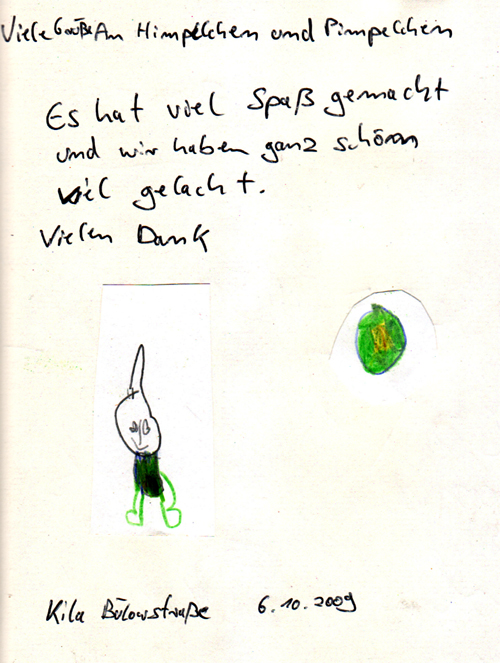 Viele Grüße An Himpelchen und Pimpelchen
Es hat viel Spaß gemacht
und wir haben ganz schön
viel gelacht.
Vielen Dank
Kita Bülowstraße 6.10.2009